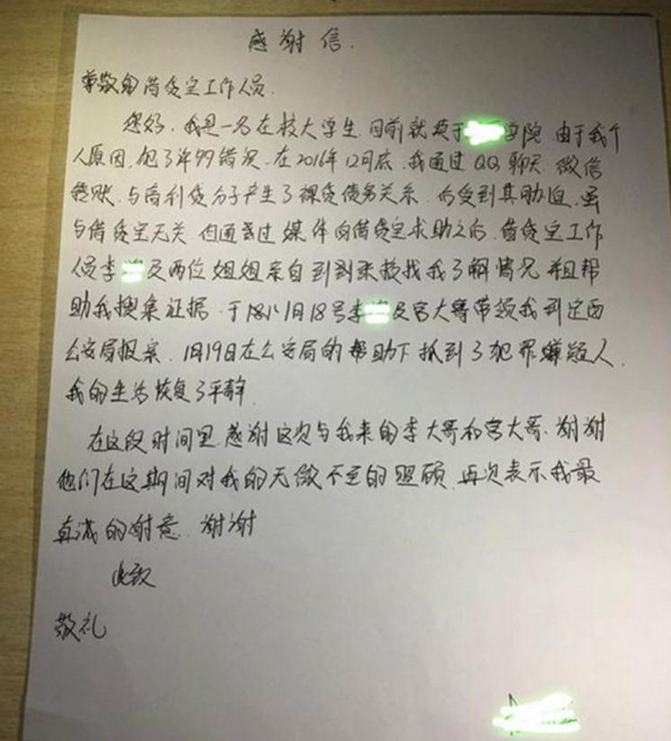 感谢信.
尊敬的借贷宝工作人员.
您好.我是一名在校大学生.目前就读于 学院 由于我个
人原因.犯了许多错误.在2016年12月底.我通过QQ聊天.微信
转账.与高利贷分子产生了裸贷债务关系.后受到其胁迫.虽
与借贷宝无关.但通过媒体向借贷宝求助之后.借贷宝工作
人员李 及两位姐姐亲自到 找我了解情况.并且帮
助我搜集证据.于 1月18号李 及宫大哥带领我到定西
公安局报案.1月19日在公安局的帮助下抓到了犯罪嫌疑人.
我的生活恢复了平静.
在这段时间里.感谢这次与我来的李大哥和宫大哥.谢谢
他们在这期间对我的无微不至的照顾.再次表示我最
真诚的谢意.谢谢
此致
敬礼